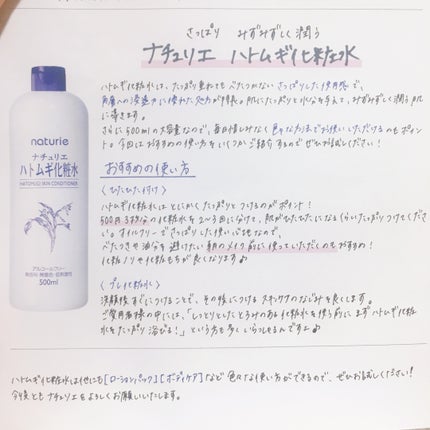 さっぱり みずみずしく潤う
ナチュリエ ハトムギ化粧水
ハトムギ化粧水は、たっぷり重ねてもべたつかない さっぱりした使用感で、
角層への浸透力に優れた処方が特長。肌にたっぷりと水分を与え、みずみずしく潤う肌
に導きます。
さらに500mlの大容量なので、毎日惜しみなく色々な方法でお使いいただけるのもポイン
ト。今回はおすすめの使い方をいくつかご紹介するのでぜひお試しください!
おすすめの使い方
〈ひたひた付け〉
ハトムギ化粧水はとにかくたっぷりとつけるのがポイント!
500円玉3枚分の化粧水を2〜3回に分けて、肌がひたひたになるくらいたっぷりつけてくださ
い。オイルフリーでさっぱりした使い心地なので、
べたつきや油分を避けたい朝のメイク前に使っていただくのもおすすめ!
化粧ノリや化粧もちが良くなります♪
〈プレ化粧水〉
洗顔後すぐにつけることで、その後につけるスキンケアのなじみを良くします。
ご愛用者様の中には、「しっとりとしたとろみのある化粧水を使う前に まずハトムギ化粧
水をたっぷり浴びる!」という方も多くいらっしゃるんですよ♪
ハトムギ化粧水は他にも[ローションパック][ボディケア]など色々な使い方ができるので、ぜひお試しください!
今後ともナチュリエをよろしくお願いいたします。
naturie
ナチュリエ
ハトムギ化粧水
HATOMUGI SKIN CONDITIONER
アルコールフリー
無香料 無着色 低刺激性
500ml